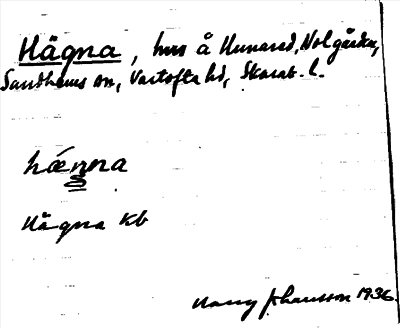 Hägna, hus å Hunared, Nolgården,
Sandhems sn, Vartofta hd, Skarab. l.
hǽnna
Hägna Kb
Harry Johansson 1936.